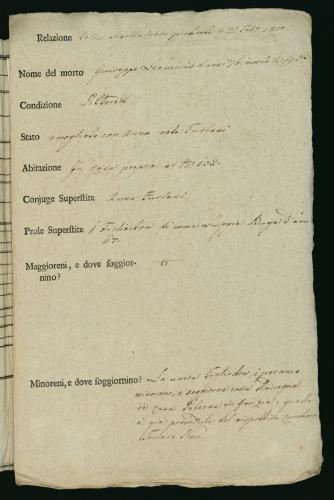 Relazione della Sigillazione praticata li 22 Febr. 1810.
Nome del morto Giuseppe d'anni 76 morto li
Condizione
Stato amogliato con Anna nata Furlani
Abitazione in casa propria al Nro 132.
Conjuge Superstite Anna Furlani
Prole Superstite 1 Figliastra di nome d'anni
17.
Maggioreni, e dove soggior-
nino?
Minoreni, e dove soggiornino? La unica Figliastra, è per anco
minorene, e soggiorna colla Madre
in casa Paterna in Gorizia, quale
è già proveduta del rispettivo curatore